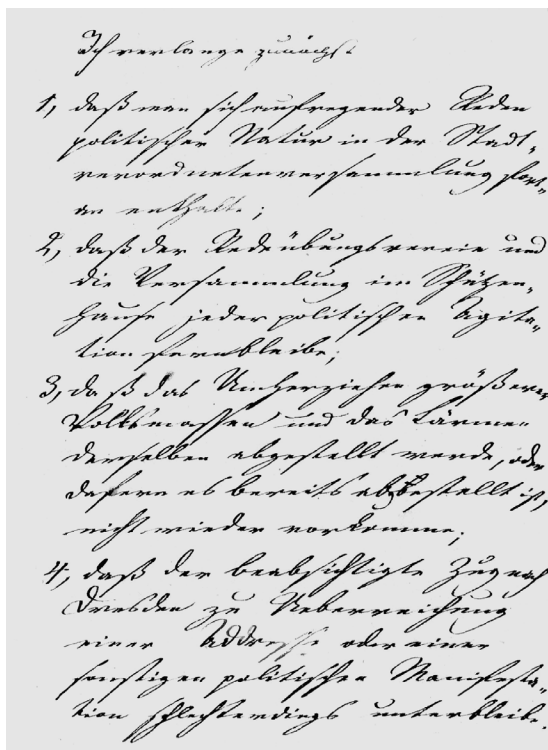 Ich verlange zunächst
1, daß man sich aufregender Reden
politischer Natur in der Stadt-
verordnetenversammlung fort-
an enthalte;
2, daß der Redeübungsverein und
die Versammlung im Schützen-
hause jeder politischen Agita-
tion fernbleibe;
3, daß das Umherziehen größerer
Volksmassen und das Lärmen
derselben abgestellt werde, oder
dafern es bereits abgestellt ist,
nicht wieder vorkomme;
4, daß der beabsichtigte Zug nach
Dresden zu Ueberreichung
einer Addresse oder einer
sonstigen politischen Manifesta-
tion schlechterdings unterbleibe.